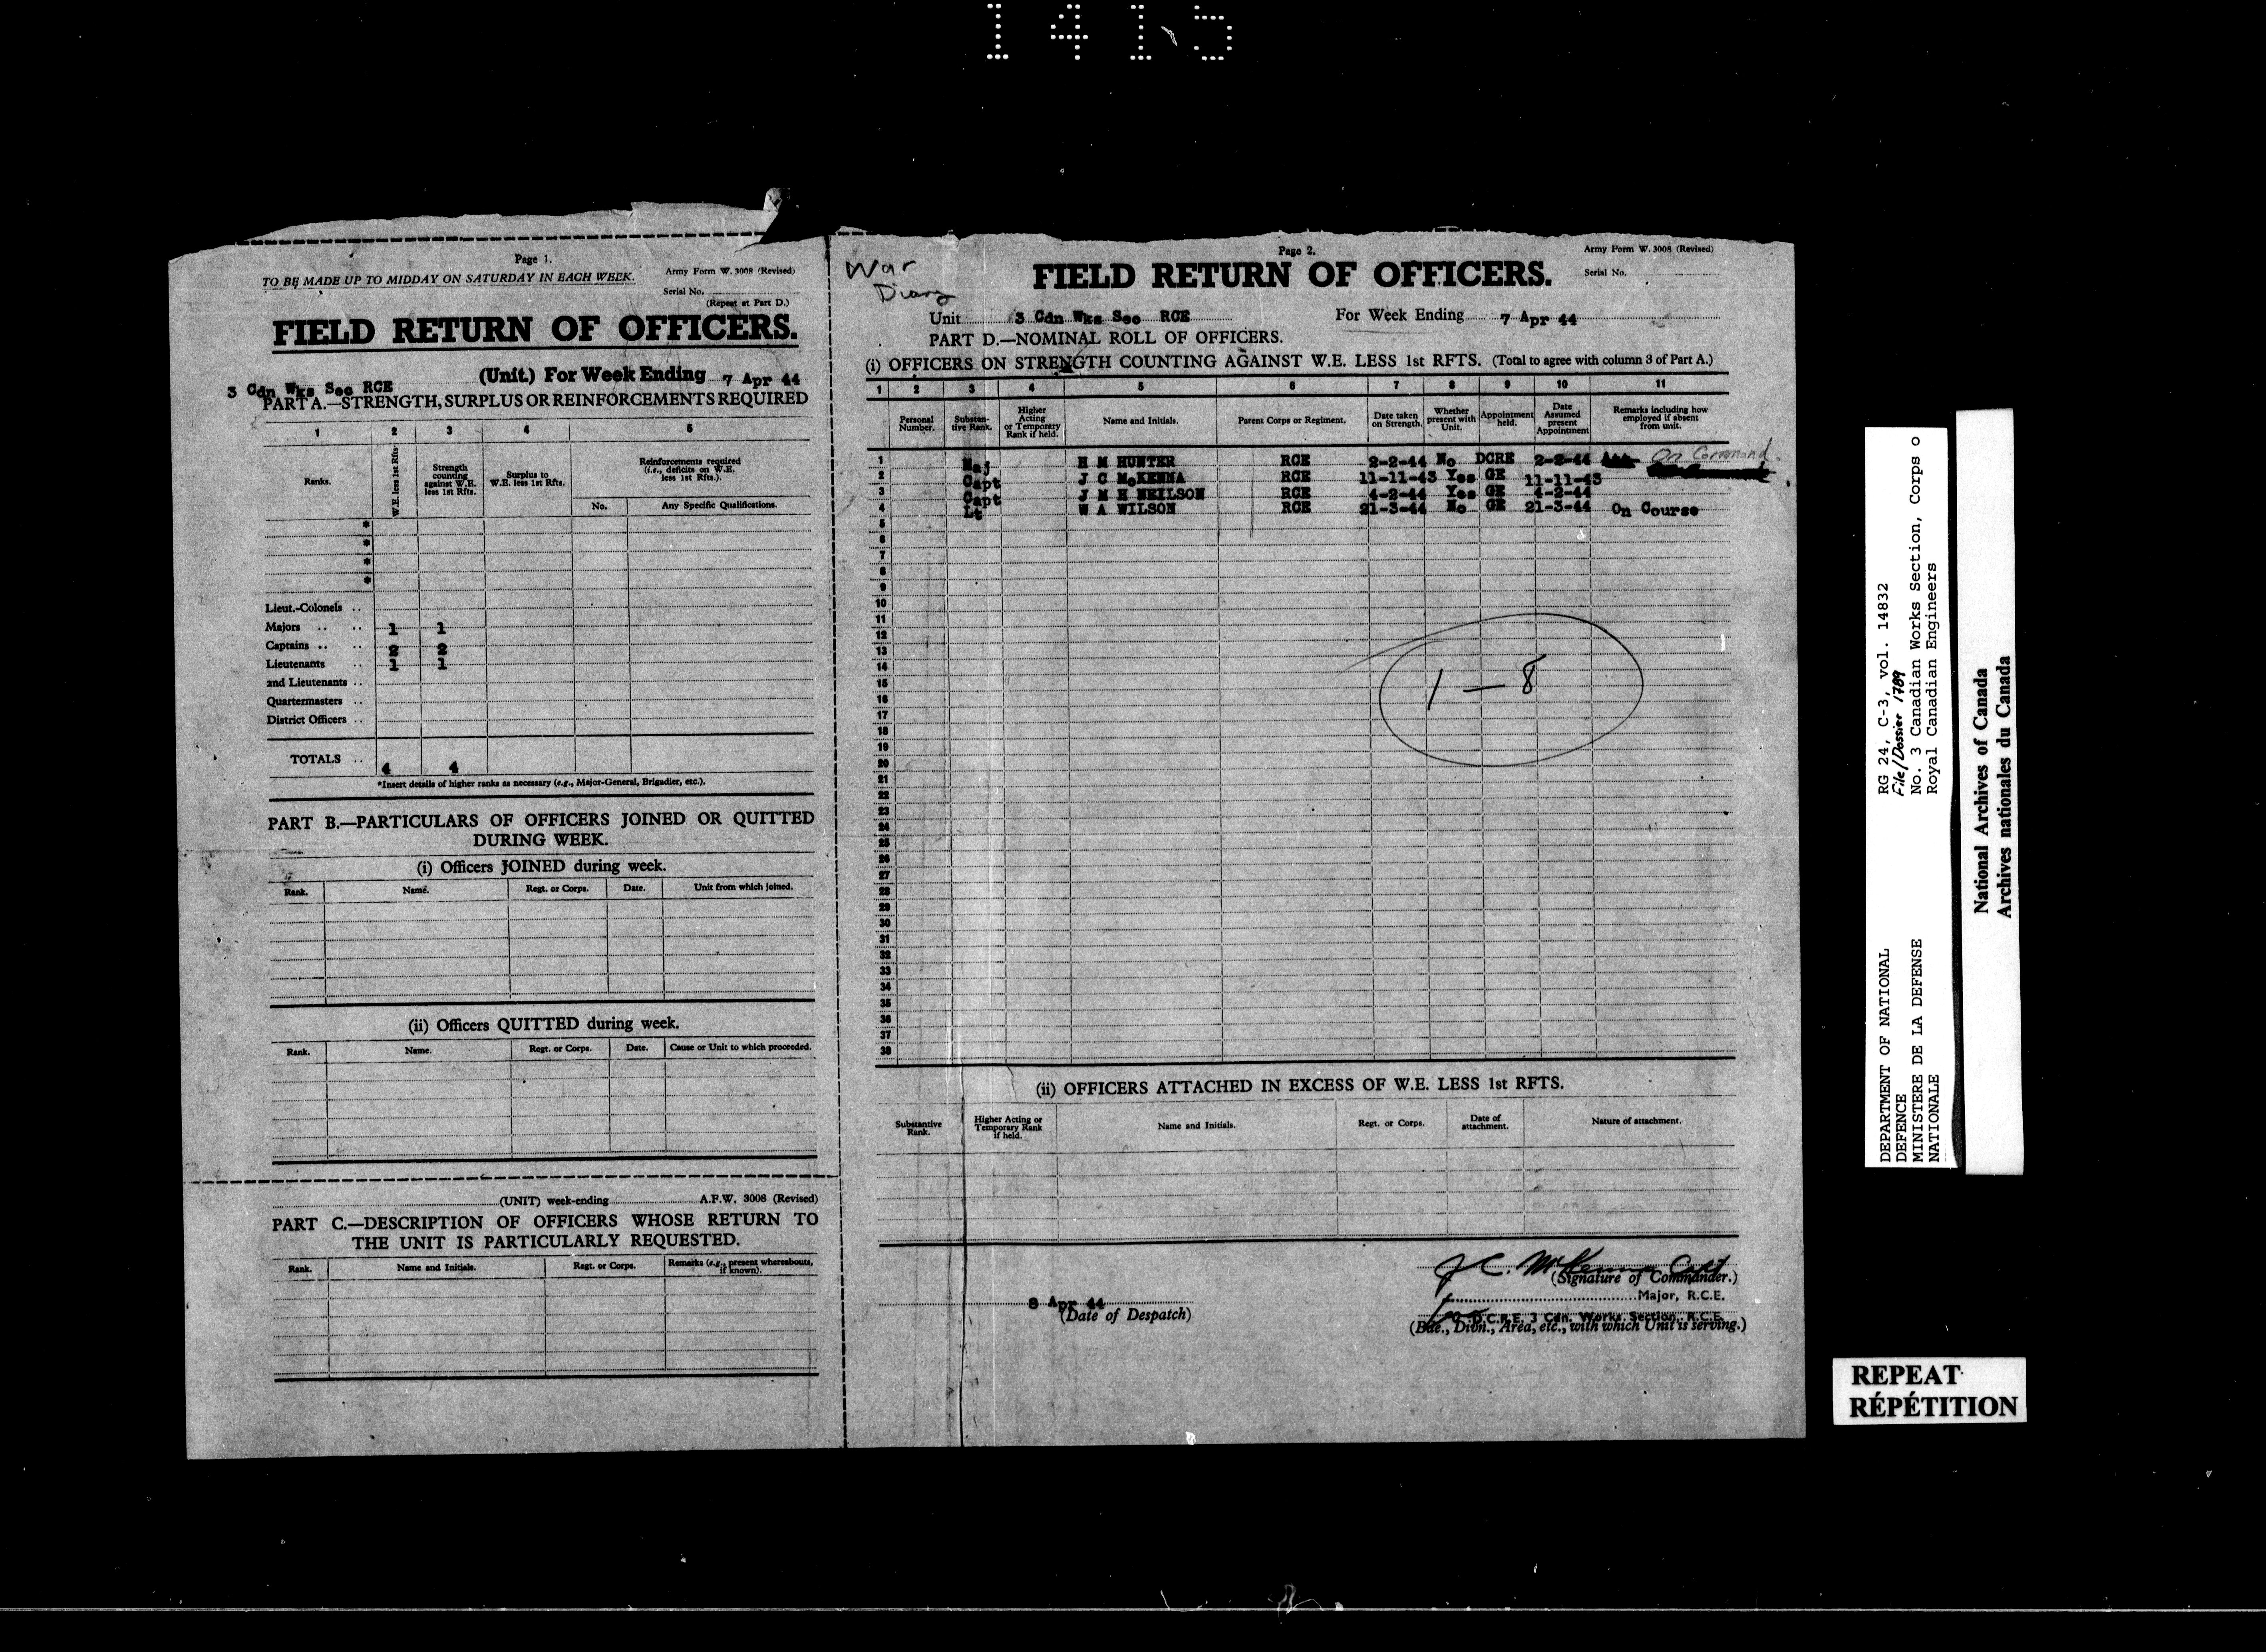 1415
Page 1.
TO BE MADE UP TO MIDDAY ON SATURDAY IN EACH WEEK.
Army Form W. 3008 (Revised)
Serial No.
(Repeat at Part D.)
FIELD RETURN OF OFFICERS.
3 Cdn Wks Sec RCE (Unit.) For Week Ending 7 Apr 44
PART A.—STRENGTH, SURPLUS OR REINFORCEMENTS REQUIRED
1 2 3 4 5
Ranks.
W.E. less 1st Rfts.
Strength counting against W.E. less 1st Rfts.
Surplus to W.E. less 1st Rfts.
Reinforcements required (i.e., deficits on W.E. less 1st Rfts.).
No. Any Specific Qualifications.
*
*
*
*
Lieut.-Colonels ..
Majors .. .. 1 1
Captains .. .. 2 2
Lieutenants .. 1 1
2nd Lieutenants ..
Quartermasters ..
District Officers ..
TOTALS .. 4 4
*Insert details of higher ranks as necessary (e.g., Major-General, Brigadier, etc.).
PART B.—PARTICULARS OF OFFICERS JOINED OR QUITTED
DURING WEEK.
(i) Officers JOINED during week.
Rank. Name. Regt. or Corps. Date. Unit from which joined.
(ii) Officers QUITTED during week.
Rank. Name. Regt. or Corps. Date. Cause or Unit to which proceeded.
(UNIT) week-ending A.F.W. 3008 (Revised)
PART C.—DESCRIPTION OF OFFICERS WHOSE RETURN TO
THE UNIT IS PARTICULARLY REQUESTED.
Rank. Name and Initials. Regt. or Corps. Remarks (e.g., present whereabouts, if known).
War
Diary
Page 2.
Army Form W. 3008 (Revised)
FIELD RETURN OF OFFICERS.
Serial No.
Unit 3 Cdn Wks Sec RCE For Week Ending 7 Apr 44
PART D.—NOMINAL ROLL OF OFFICERS.
(i) OFFICERS ON STRENGTH COUNTING AGAINST W.E. LESS 1st RFTS. (Total to agree with column 3 of Part A.)
1 2 3 4 5 6 7 8 9 10 11
Personal Number.
Substantive Rank.
Higher Acting or Temporary Rank if held.
Name and Initials.
Parent Corps or Regiment.
Date taken on Strength.
Whether present with Unit.
Appointment held.
Date Assumed present Appointment
Remarks including how employed if absent from unit.
1 Maj H M HUNTER RCE 2-2-44 No DCRE 2-2-44 On Command.
2 Capt J C McKENNA RCE 11-11-43 Yes GE 11-11-43
3 Capt J M H NEILSON RCE 4-2-44 Yes GE 4-2-44
4 Lt W A WILSON RCE 21-3-44 No GE 21-3-44 On Course
5
6
7
8
9
10
11
12
13
14
15
16
17
18
19
20
21
22
23
24
25
26
27
28
29
30
31
32
33
34
35
36
37
38
1 — 8
(ii) OFFICERS ATTACHED IN EXCESS OF W.E. LESS 1st RFTS.
Substantive Rank.
Higher Acting or Temporary Rank if held.
Name and Initials.
Regt. or Corps.
Date of attachment.
Nature of attachment.
J C. McKenna Capt
(Signature of Commander.)
Major, R.C.E.
8 Apr 44
(Date of Despatch)
for D.C.R.E. 3 Cdn. Works. Section, R.C.E.
(Bde., Divn., Area, etc., with which Unit is serving.)
DEPARTMENT OF NATIONAL
DEFENCE
MINISTERE DE LA DEFENSE
NATIONALE
RG 24, C-3, vol. 14832
File/Dossier 1789
No. 3 Canadian Works Section, Corps o
Royal Canadian Engineers
National Archives of Canada
Archives nationales du Canada
REPEAT
RÉPÉTITION